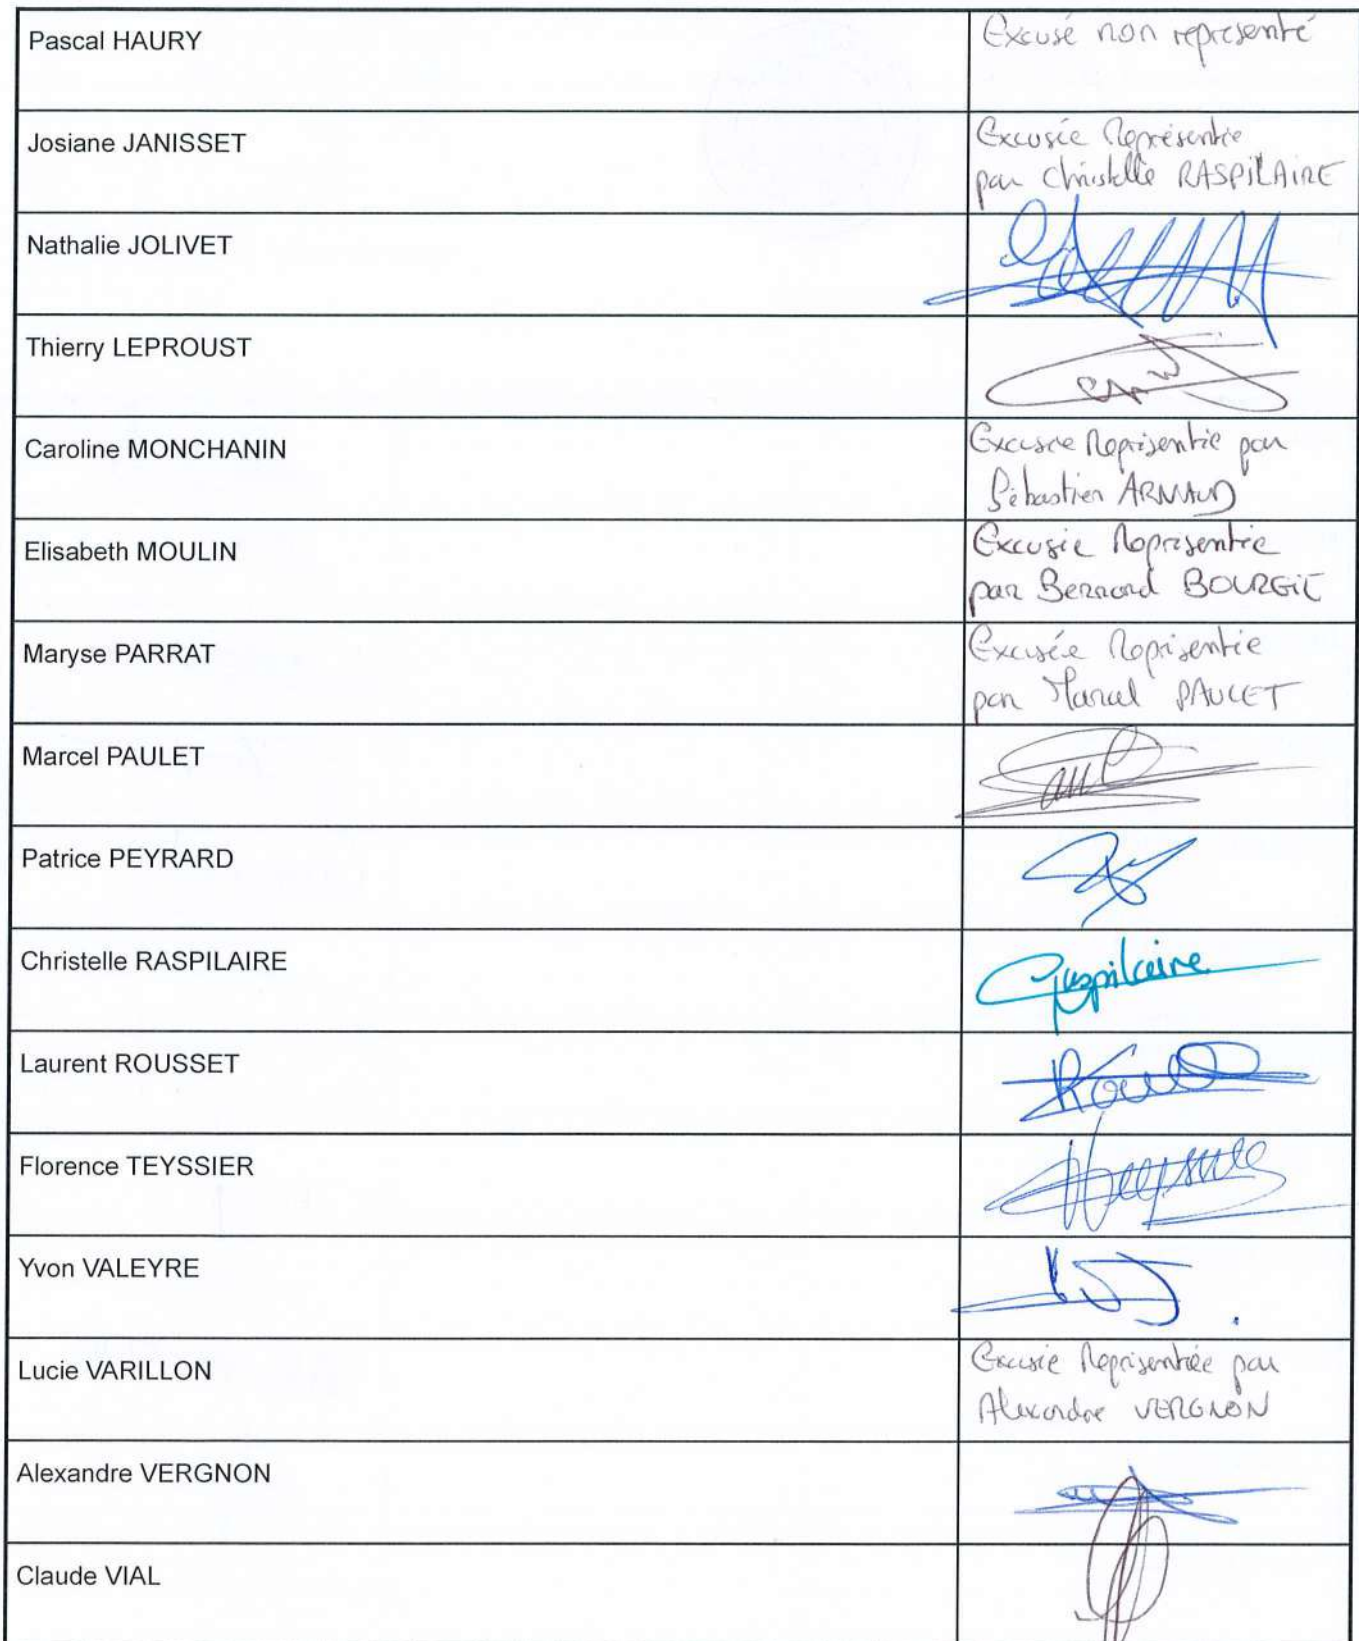 Pascal HAURY
Excusé non représenté
Josiane JANISSET
Excusée Représentée
par Christelle RASPILAIRE
Nathalie JOLIVET
Thierry LEPROUST
Caroline MONCHANIN
Excusée Représentée par
Sébastien ARNAUD
Elisabeth MOULIN
Excusée Représentée
par Bernard BOURGIE
Maryse PARRAT
Excusée Représentée
par Marcel PAULET
Marcel PAULET
Patrice PEYRARD
Christelle RASPILAIRE
Raspilaire
Laurent ROUSSET
Florence TEYSSIER
Yvon VALEYRE
Lucie VARILLON
Excusée Représentée par
Alexandre VERGNON
Alexandre VERGNON
Claude VIAL